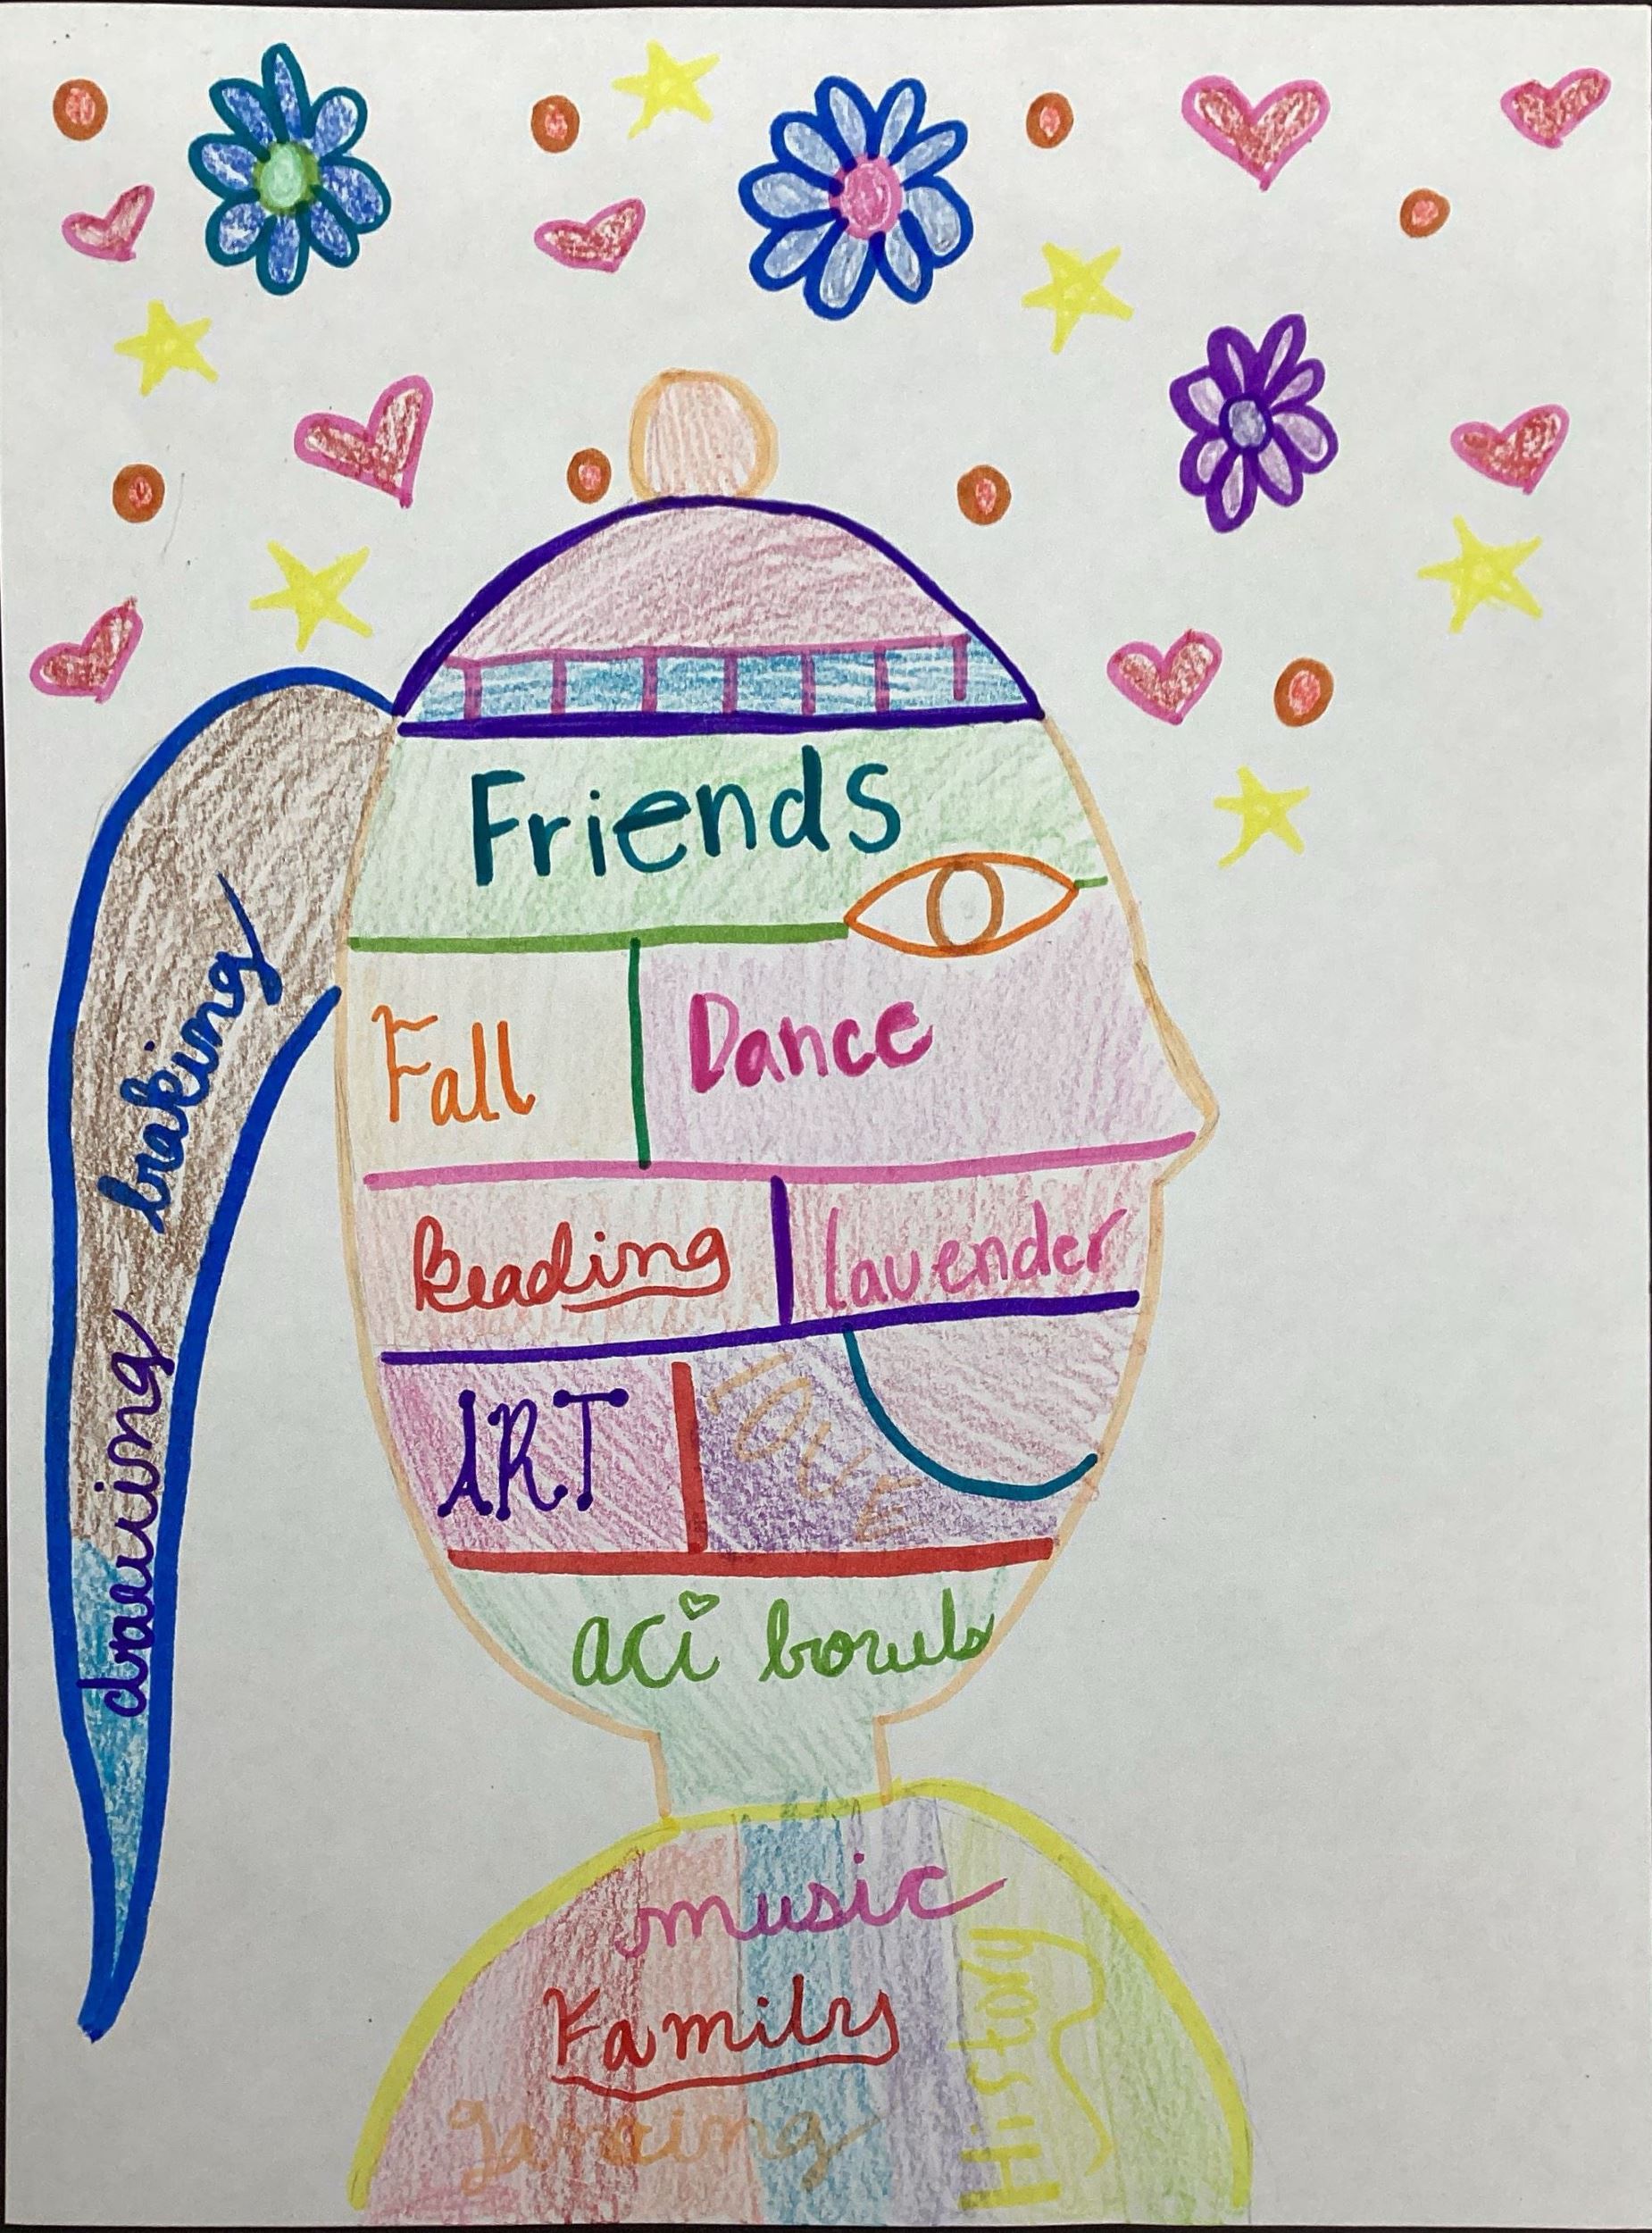 Friends
Fall
Dance
Reading
lavender
ART
LOVE
baking
drawing
aci bowls
music
Family
History